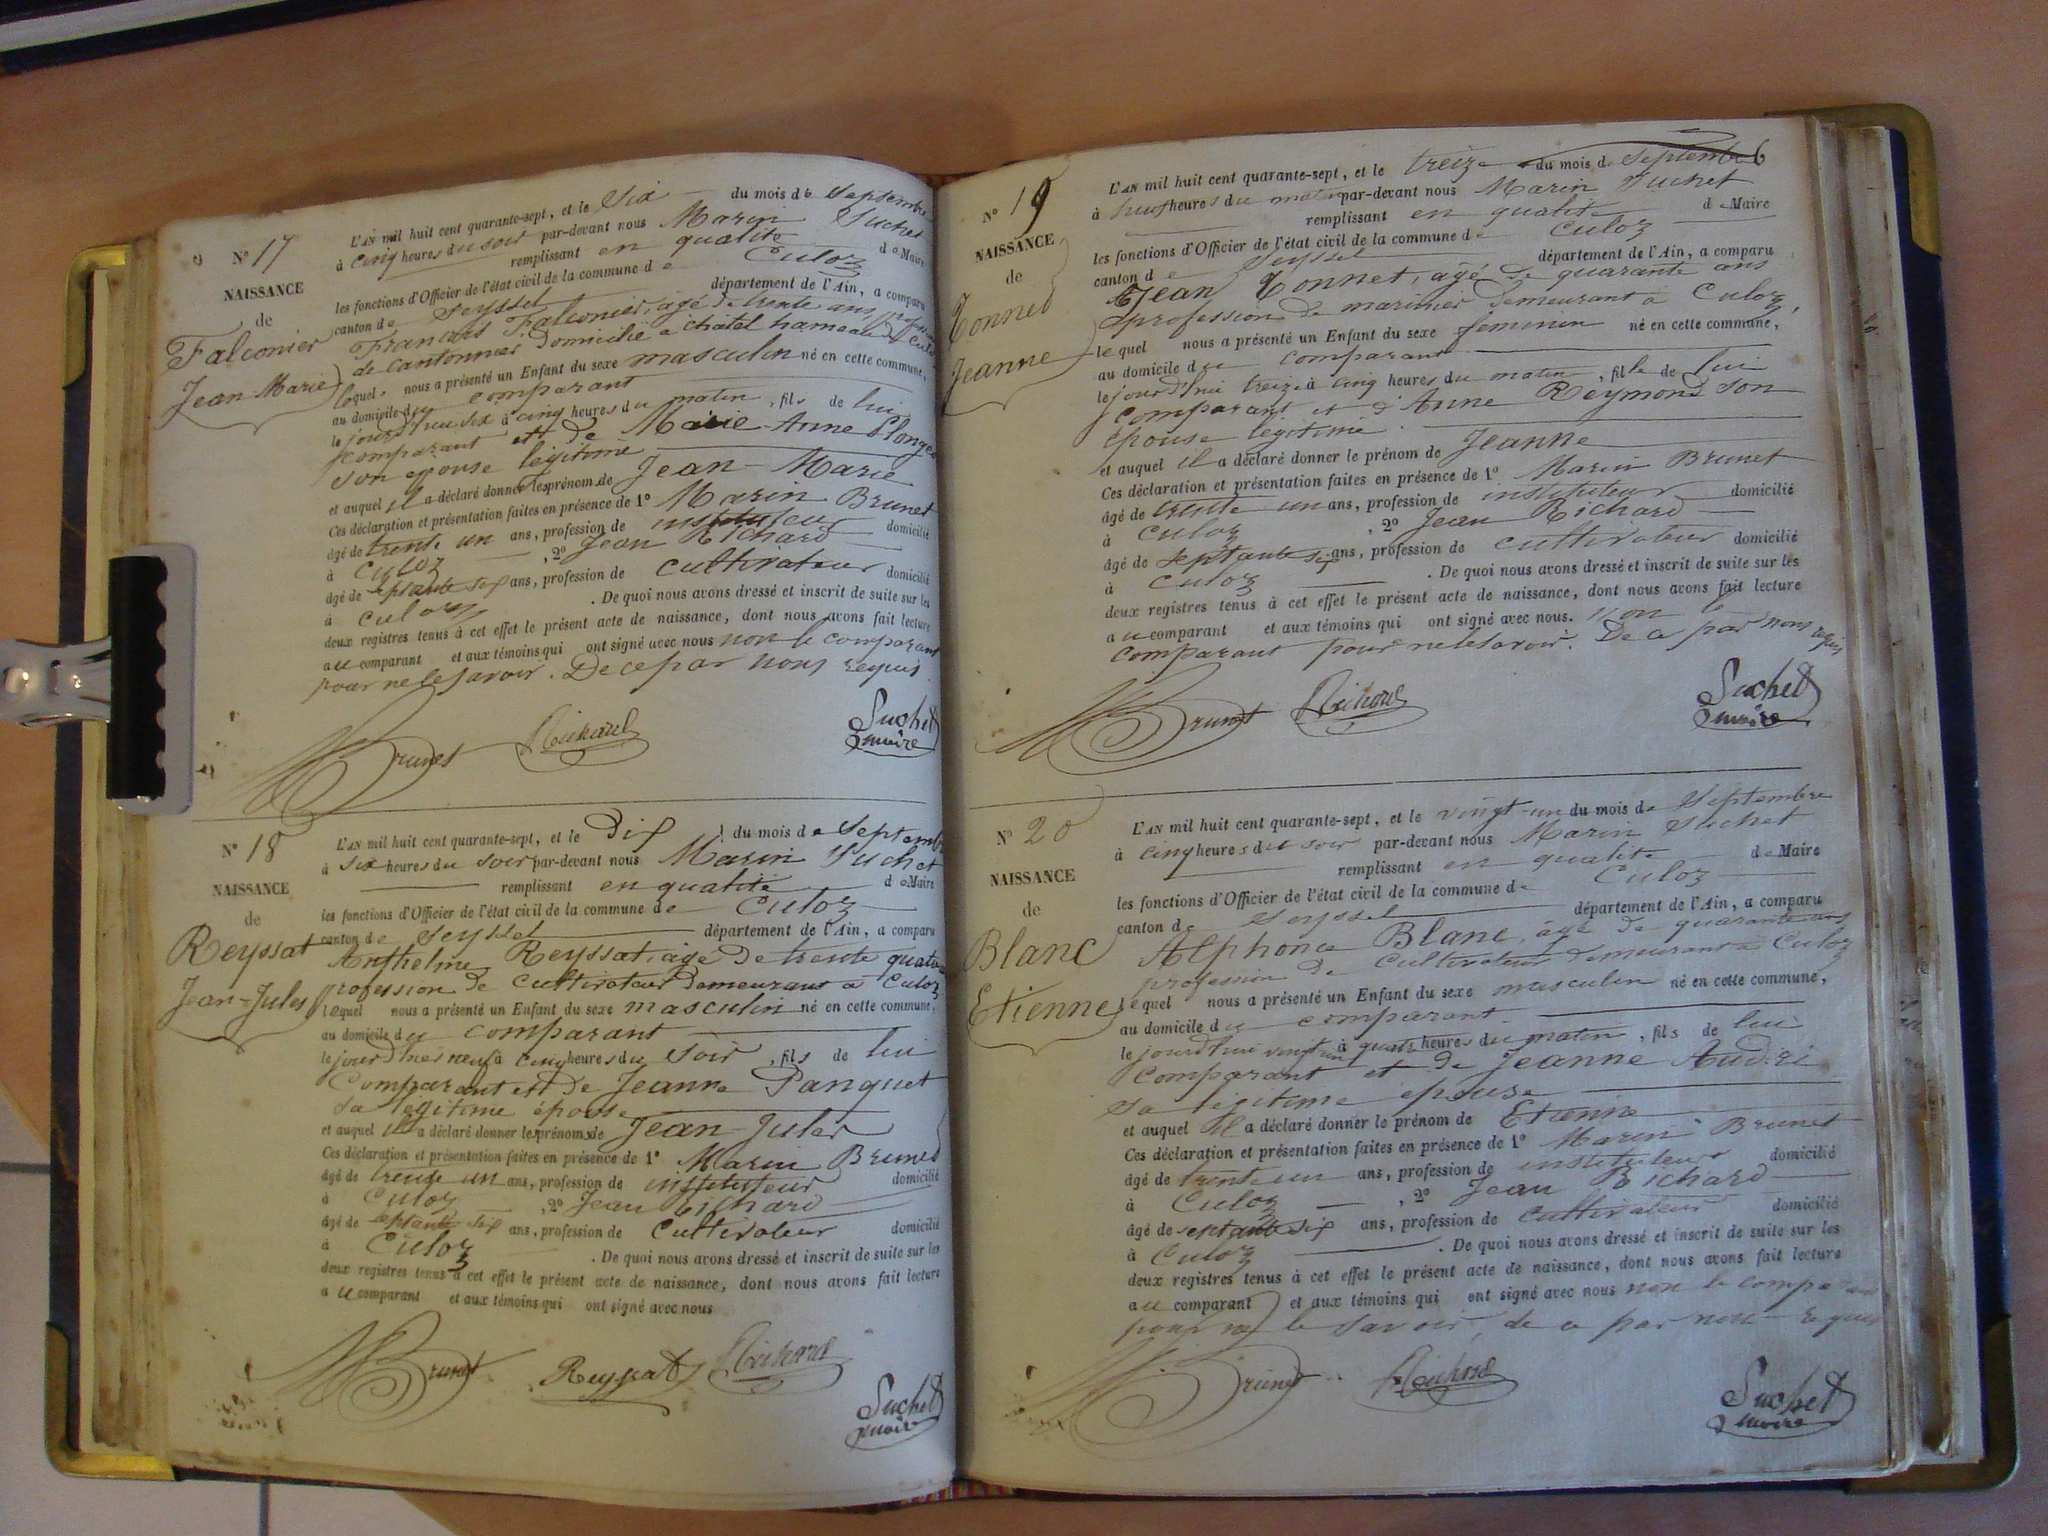 N° 17
NAISSANCE
de
Falconier
Jean Marie
L'AN mil huit cent quarante-sept, et le six du mois de Septembre
à cinq heures du soir par-devant nous Marin Suchet
remplissant en qualité de Maire
les fonctions d'Officier de l'état civil de la commune de Culoz
canton de Seyssel département de l'Ain, a comparu
François Falconier, agé de trente ans, profession
de cantonnier domicilié à châtel hameau de Culoz
lequel nous a présenté un Enfant du sexe masculin né en cette commune,
au domicile du comparant
le jourd'hui six à cinq heures du matin, fils de lui
comparant et de Marie-Anne
son épouse légitime
et auquel il a déclaré donner les prénoms de Jean-Marie
Ces déclaration et présentation faites en présence de 1° Marin Brunet
âgé de trente un ans, profession de instituteur domicilié
à Culoz, 2° Jean Richard
âgé de septante six ans, profession de cultivateur domicilié
à Culoz. De quoi nous avons dressé et inscrit de suite sur les
deux registres tenus à cet effet le présent acte de naissance, dont nous avons fait lecture
au comparant et aux témoins qui ont signé avec nous non le comparant
pour ne le savoir. De ce par nous requis
Brunet Richard Suchet
maire
N° 18
NAISSANCE
de
Reyssat
Jean-Jules
L'AN mil huit cent quarante-sept, et le dix du mois de Septembre
à six heures du soir par-devant nous Marin Suchet
remplissant en qualité de Maire
les fonctions d'Officier de l'état civil de la commune de Culoz
canton de Seyssel département de l'Ain, a comparu
Anthelme Reyssat, agé de trente quatre
profession de cultivateur demeurant à Culoz
lequel nous a présenté un Enfant du sexe masculin né en cette commune,
au domicile du comparant
le jour d'hier neuf à cinq heures du soir, fils de lui
comparant et de Jeanne Panquet
sa légitime épouse
et auquel il a déclaré donner les prénoms de Jean-Jules
Ces déclaration et présentation faites en présence de 1° Marin Brunet
âgé de trente un ans, profession de instituteur domicilié
à Culoz, 2° Jean Richard
âgé de septante six ans, profession de cultivateur domicilié
à Culoz. De quoi nous avons dressé et inscrit de suite sur les
deux registres tenus à cet effet le présent acte de naissance, dont nous avons fait lecture
au comparant et aux témoins qui ont signé avec nous
Brunet Reyssat Richard
Suchet
maire
6
N° 19
NAISSANCE
de
Connet
Jeanne
L'AN mil huit cent quarante-sept, et le treize du mois de Septembre
à heures du matin par-devant nous Marin Suchet
remplissant en qualité de Maire
les fonctions d'Officier de l'état civil de la commune de Culoz
canton de Seyssel département de l'Ain, a comparu
Jean Connet, agé de quarante ans
profession de marinier demeurant à Culoz,
lequel nous a présenté un Enfant du sexe feminin né en cette commune,
au domicile du comparant
le jourd'hui treize à cinq heures du matin, fille de lui
comparant et d'Anne Reymond son
épouse légitime.
et auquel il a déclaré donner le prénom de Jeanne
Ces déclaration et présentation faites en présence de 1° Marin Brunet
âgé de trente un ans, profession de instituteur domicilié
à Culoz, 2° Jean Richard
âgé de septante six ans, profession de cultivateur domicilié
à Culoz. De quoi nous avons dressé et inscrit de suite sur les
deux registres tenus à cet effet le présent acte de naissance, dont nous avons fait lecture
au comparant et aux témoins qui ont signé avec nous. non le
comparant pour ne le savoir. De ce par nous requis
Brunet Richard Suchet
maire
N° 20
NAISSANCE
de
Blanc
Etienne
L'AN mil huit cent quarante-sept, et le vingt-un du mois de Septembre
à cinq heures du soir par-devant nous Marin Suchet
remplissant en qualité de Maire
les fonctions d'Officier de l'état civil de la commune de Culoz
canton de Seyssel département de l'Ain, a comparu
Alphonce Blanc, agé de quarante ans
profession de cultivateur demeurant à Culoz
lequel nous a présenté un Enfant du sexe masculin né en cette commune,
au domicile du comparant.
le jourd'hui vingt un à quatre heures du matin, fils de lui
comparant et de Jeanne Audri
sa légitime épouse
et auquel il a déclaré donner le prénom de Etienne
Ces déclaration et présentation faites en présence de 1° Marin Brunet
âgé de trente un ans, profession de instituteur domicilié
à Culoz, 2° Jean Richard
âgé de septante six ans, profession de cultivateur domicilié
à Culoz. De quoi nous avons dressé et inscrit de suite sur les
deux registres tenus à cet effet le présent acte de naissance, dont nous avons fait lecture
au comparant et aux témoins qui ont signé avec nous non le comparant
pour ne le savoir, de ce par nous requis
Brunet Richard Suchet
maire